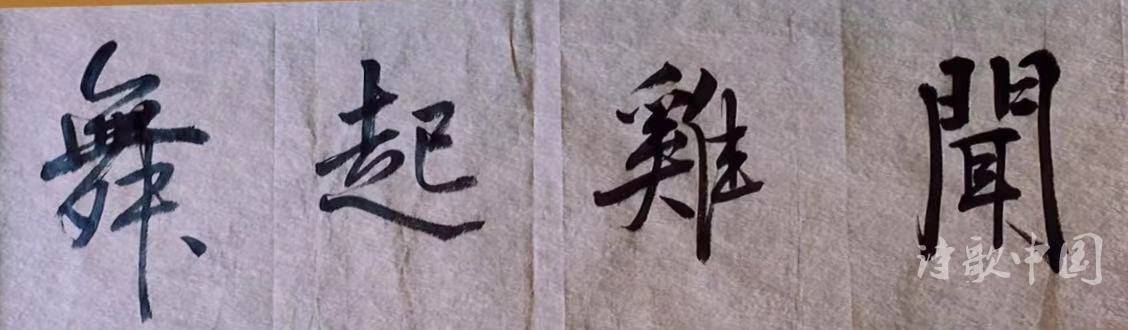 聞雞起舞
诗歌中国